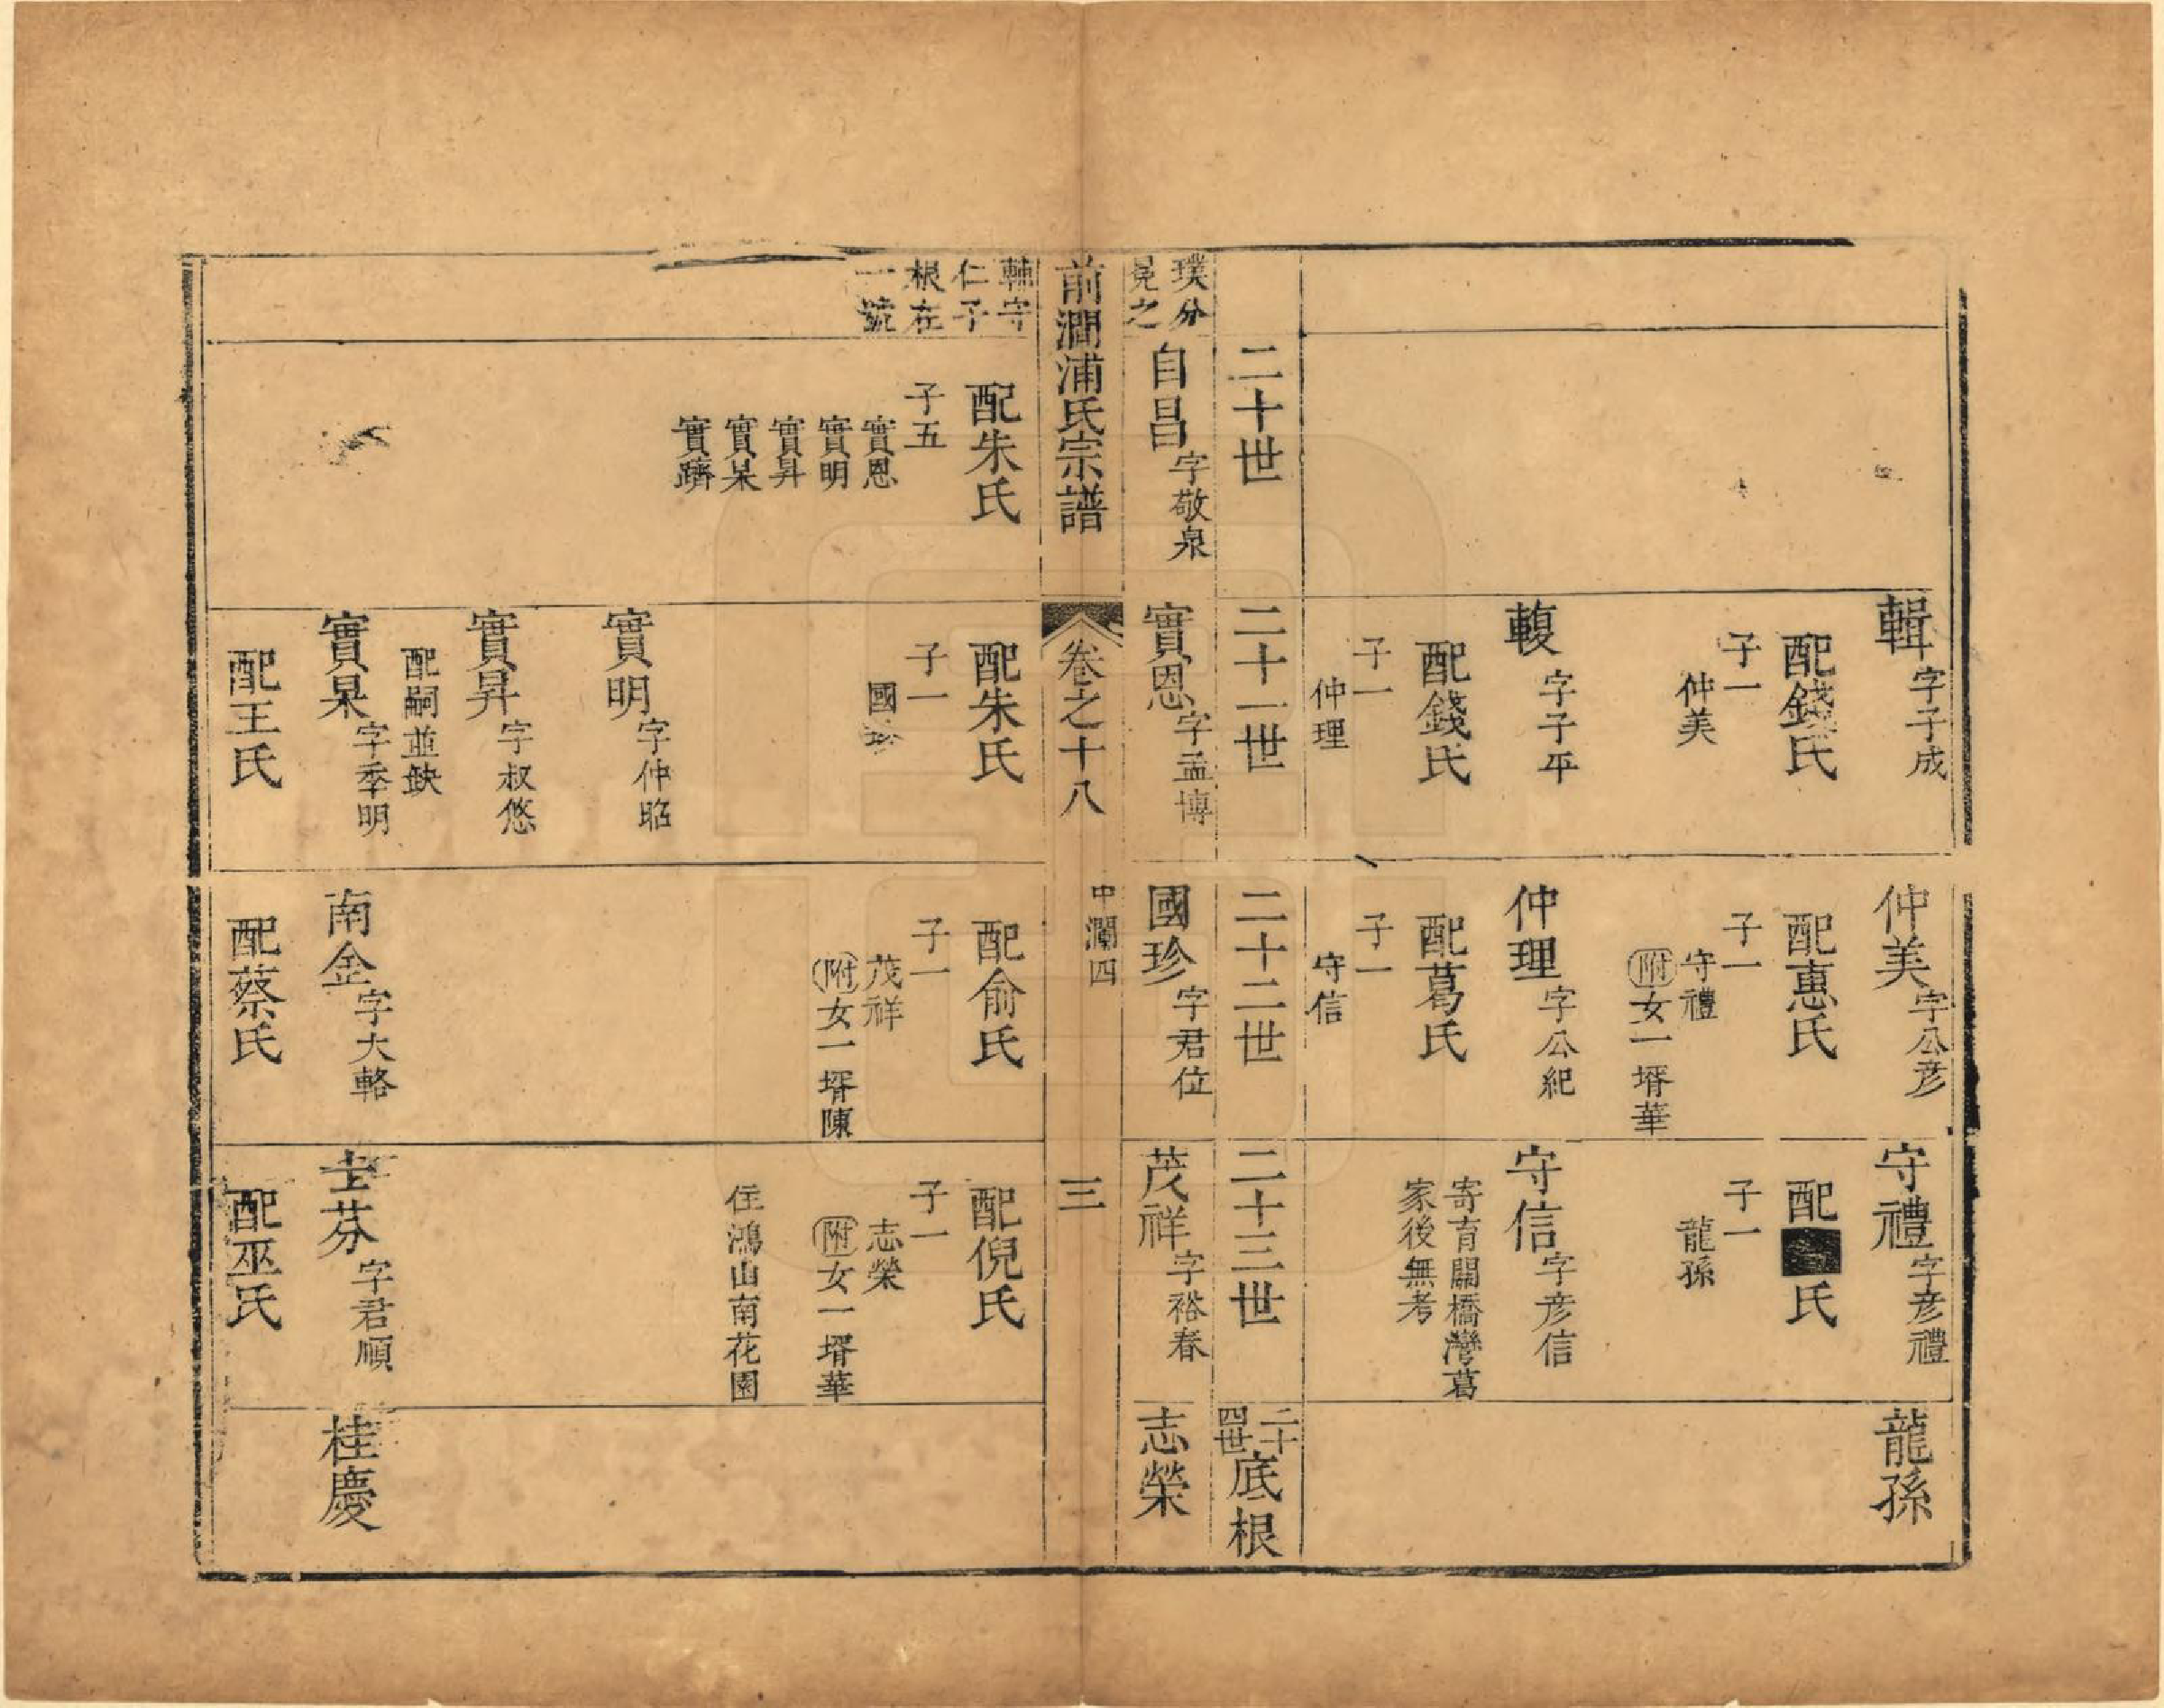 輯字子成
配錢氏
子一
仲美
輹字子平
配錢氏
子一
仲理
仲美字公彥
配惠氏
子一
守禮
附女一壻華
仲理字公紀
配葛氏
子一
守信
守禮字彥禮
配氏
子一
龍孫
守信字彥信
寄育關橋灣葛
家後無考
龍孫
二十世
二十一世
二十二世
二十三世
二十四世底根
璞分
晃之
自昌字敬泉
實恩字孟博
國珍字君位
茂祥字裕春
志榮
前澗浦氏宗譜
卷之十八
中瀾四
三
軼守
仁子
根在
一號
配朱氏
子五
實恩
實明
實昇
實杲
實躋
配朱氏
子一
國珍
實明字仲昭
實昇字叔悠
配嗣並缺
實杲字季明
配王氏
配俞氏
子一
茂祥
附女一壻陳
南金字大輅
配蔡氏
配倪氏
子一
志榮
附女一壻華
住鴻山南花園
士芬字君順
配巫氏
桂慶